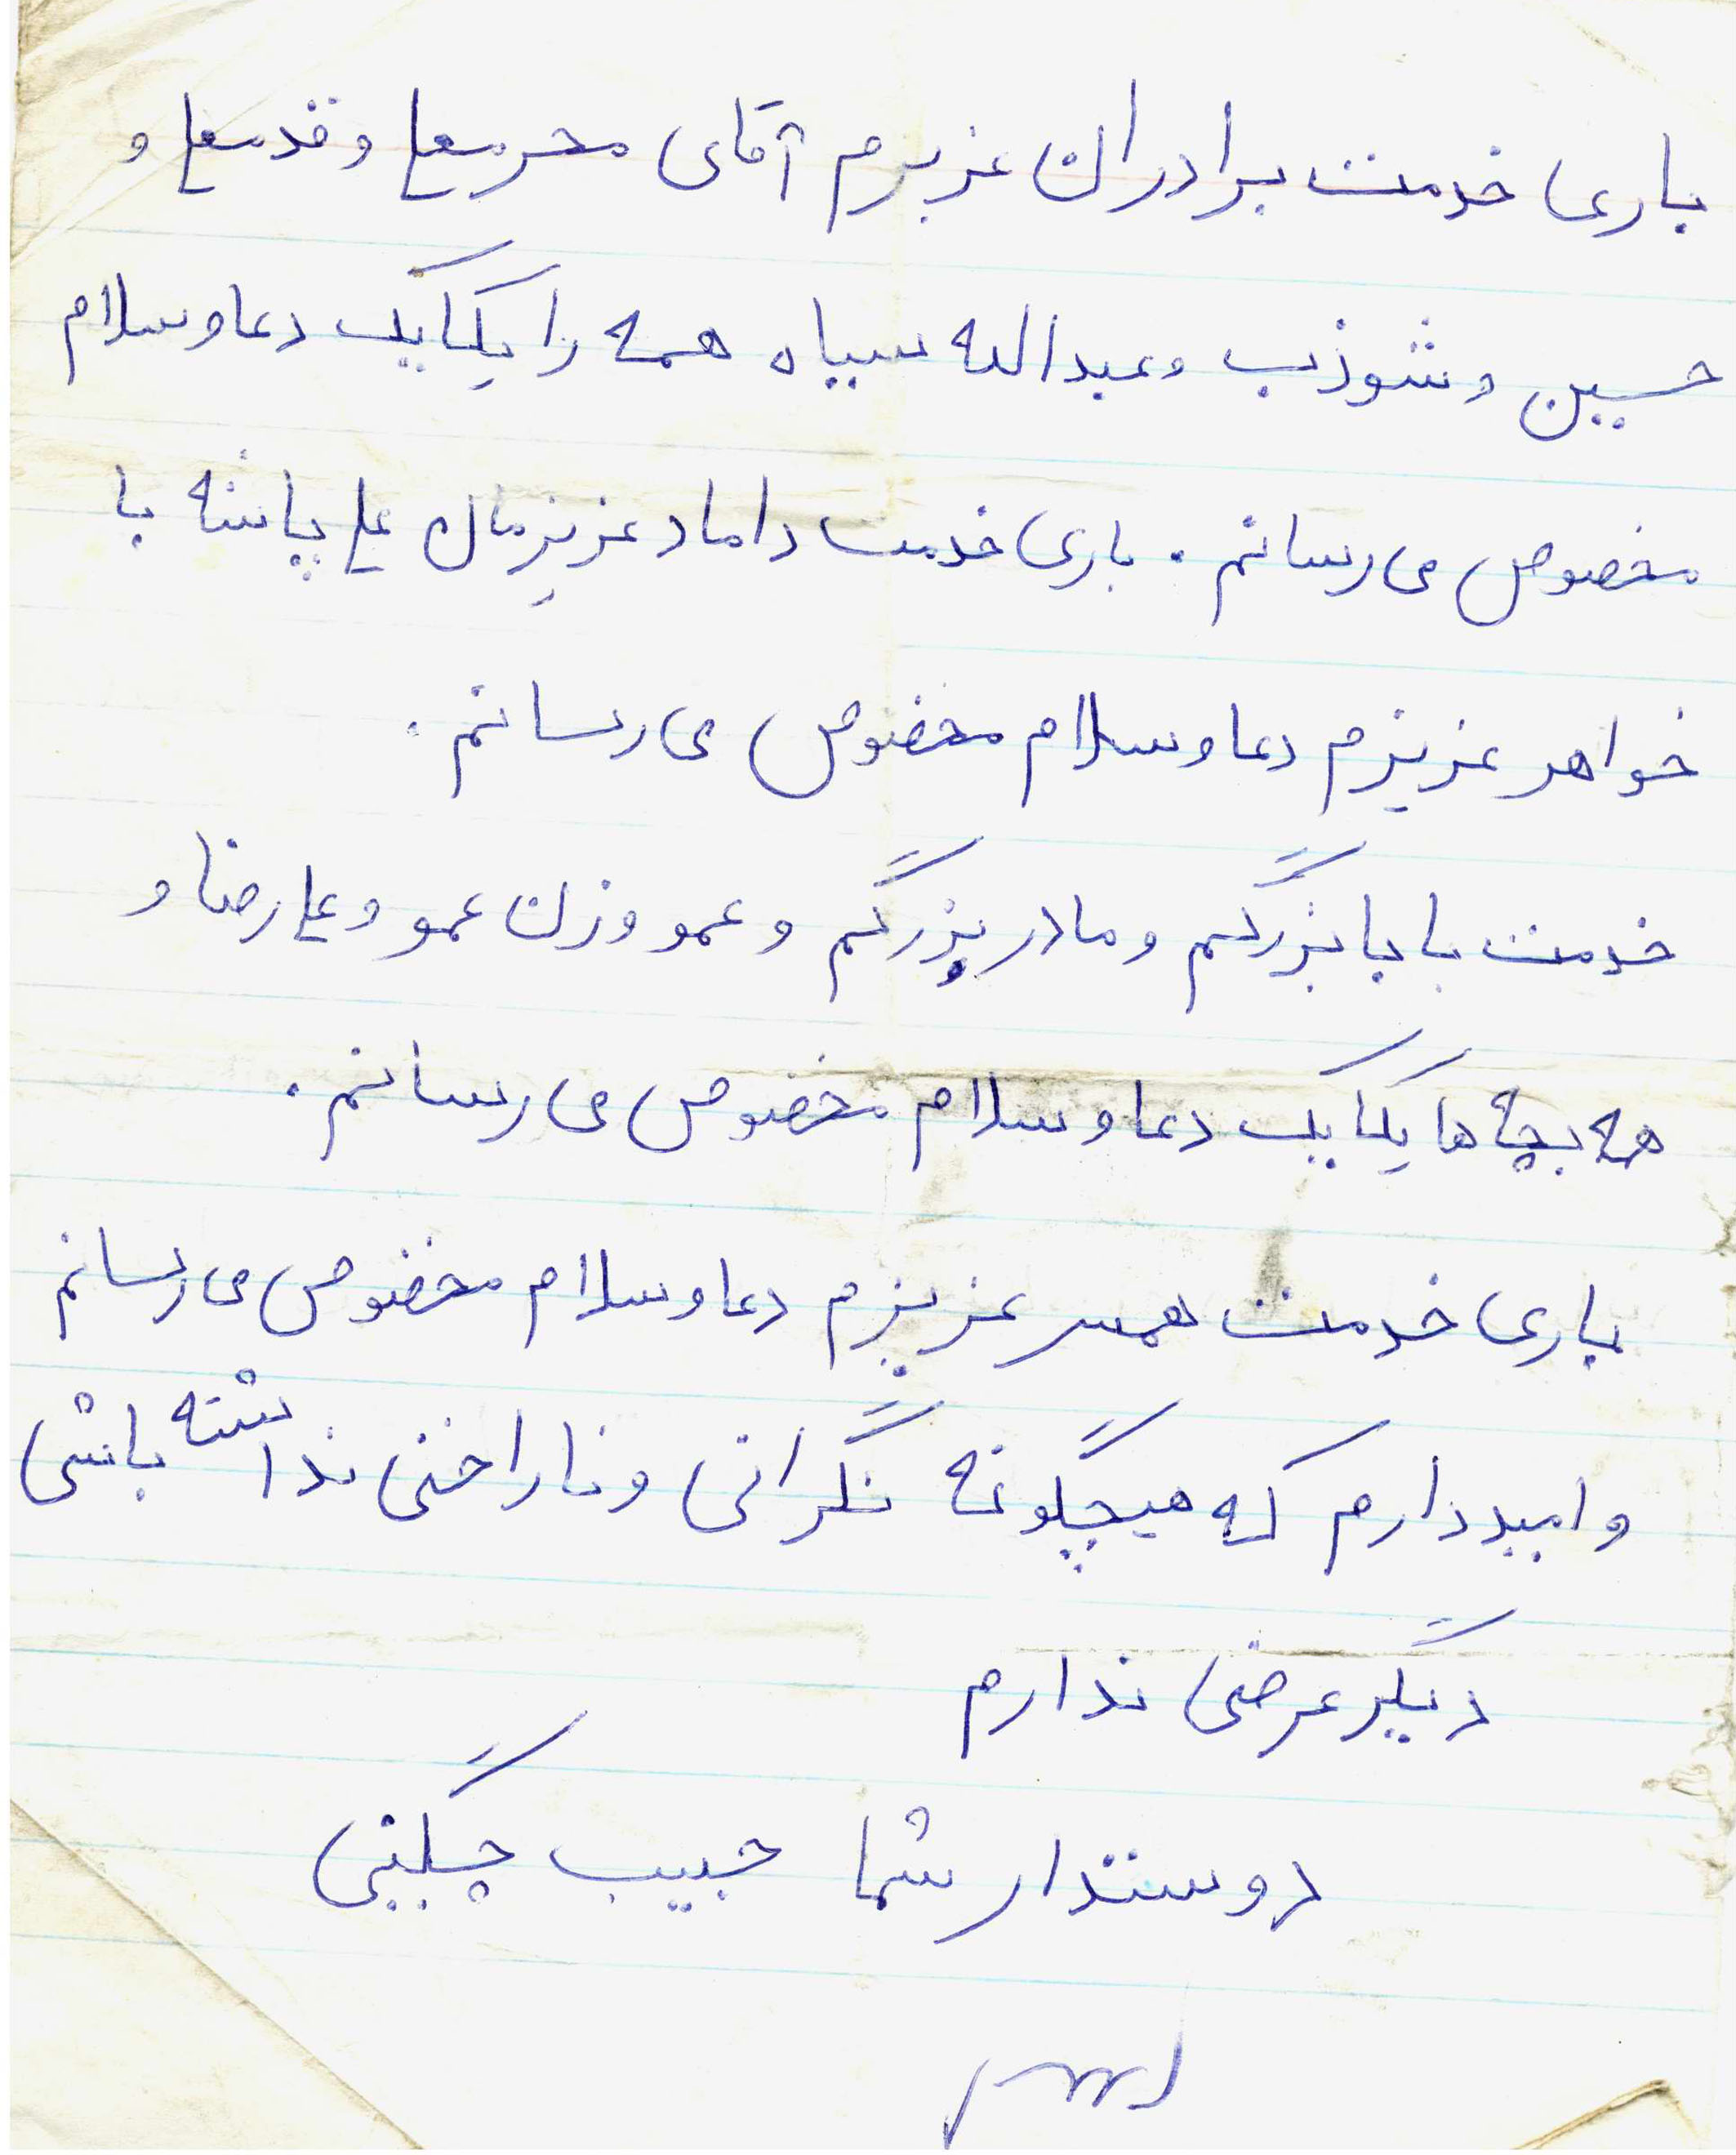 باری خدمت برادران عزیزم آقای محرمعلی و قدمعلی و
حسین و شوذب و عبدالله سیاه همه را یکایک دعا و سلام
مخصوص می رسانم . باری خدمت داماد عزیزمان علی پاشنه با
خواهر عزیزم دعا و سلام مخصوص می رسانم .
خدمت بابابزرگم و مادر بزرگم و عمو و زن عمو و علی رضا و
همه بچه ها یکایک دعا و سلام مخصوص می رسانم .
باری خدمت همسر عزیزم دعا و سلام مخصوص می رسانم
و امید دارم که هیچگونه نگرانی و ناراحتی نداشته باشی
دیگر عرضی ندارم
دوستدار شما حبیب چگینی